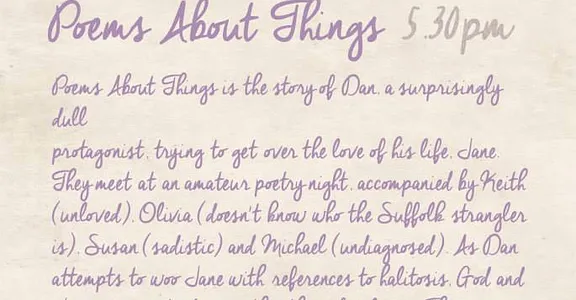 Poems About Things 5.30pm
Poems About Things is the story of Dan, a surprisingly
dull
protagonist, trying to get over the love of his life, Jane.
They meet at an amateur poetry night, accompanied by Keith
(unloved), Olivia (doesn't know who the Suffolk strangler
is), Susan (sadistic) and Michael (undiagnosed). As Dan
attempts to woo Jane with references to halitosis, God and